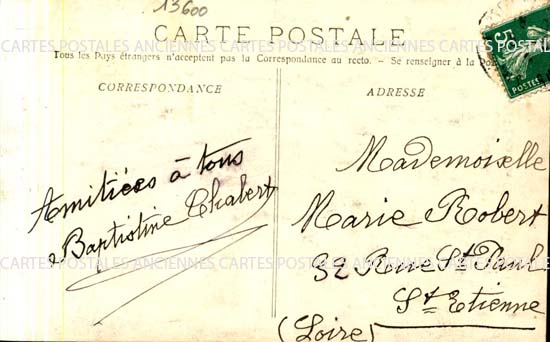 13600
CARTE POSTALE
Tous les Pays étrangers n'acceptent pas la Correspondance au recto. - Se renseigner à la
CORRESPONDANCE
Amitiées à tous
Baptistine Chabert
ADRESSE
Mademoiselle
Marie Robert
32 Rue St Paul
St Etienne
(Loire)
5
POSTES
CARTES POSTALES ANCIENNES CARTES POSTALES ANCIENNES CARTES POSTALES ANCIENNES
CARTES POSTALES ANCIENNES CARTES POSTALES ANCIENNES CARTES POSTALES ANCIENNES